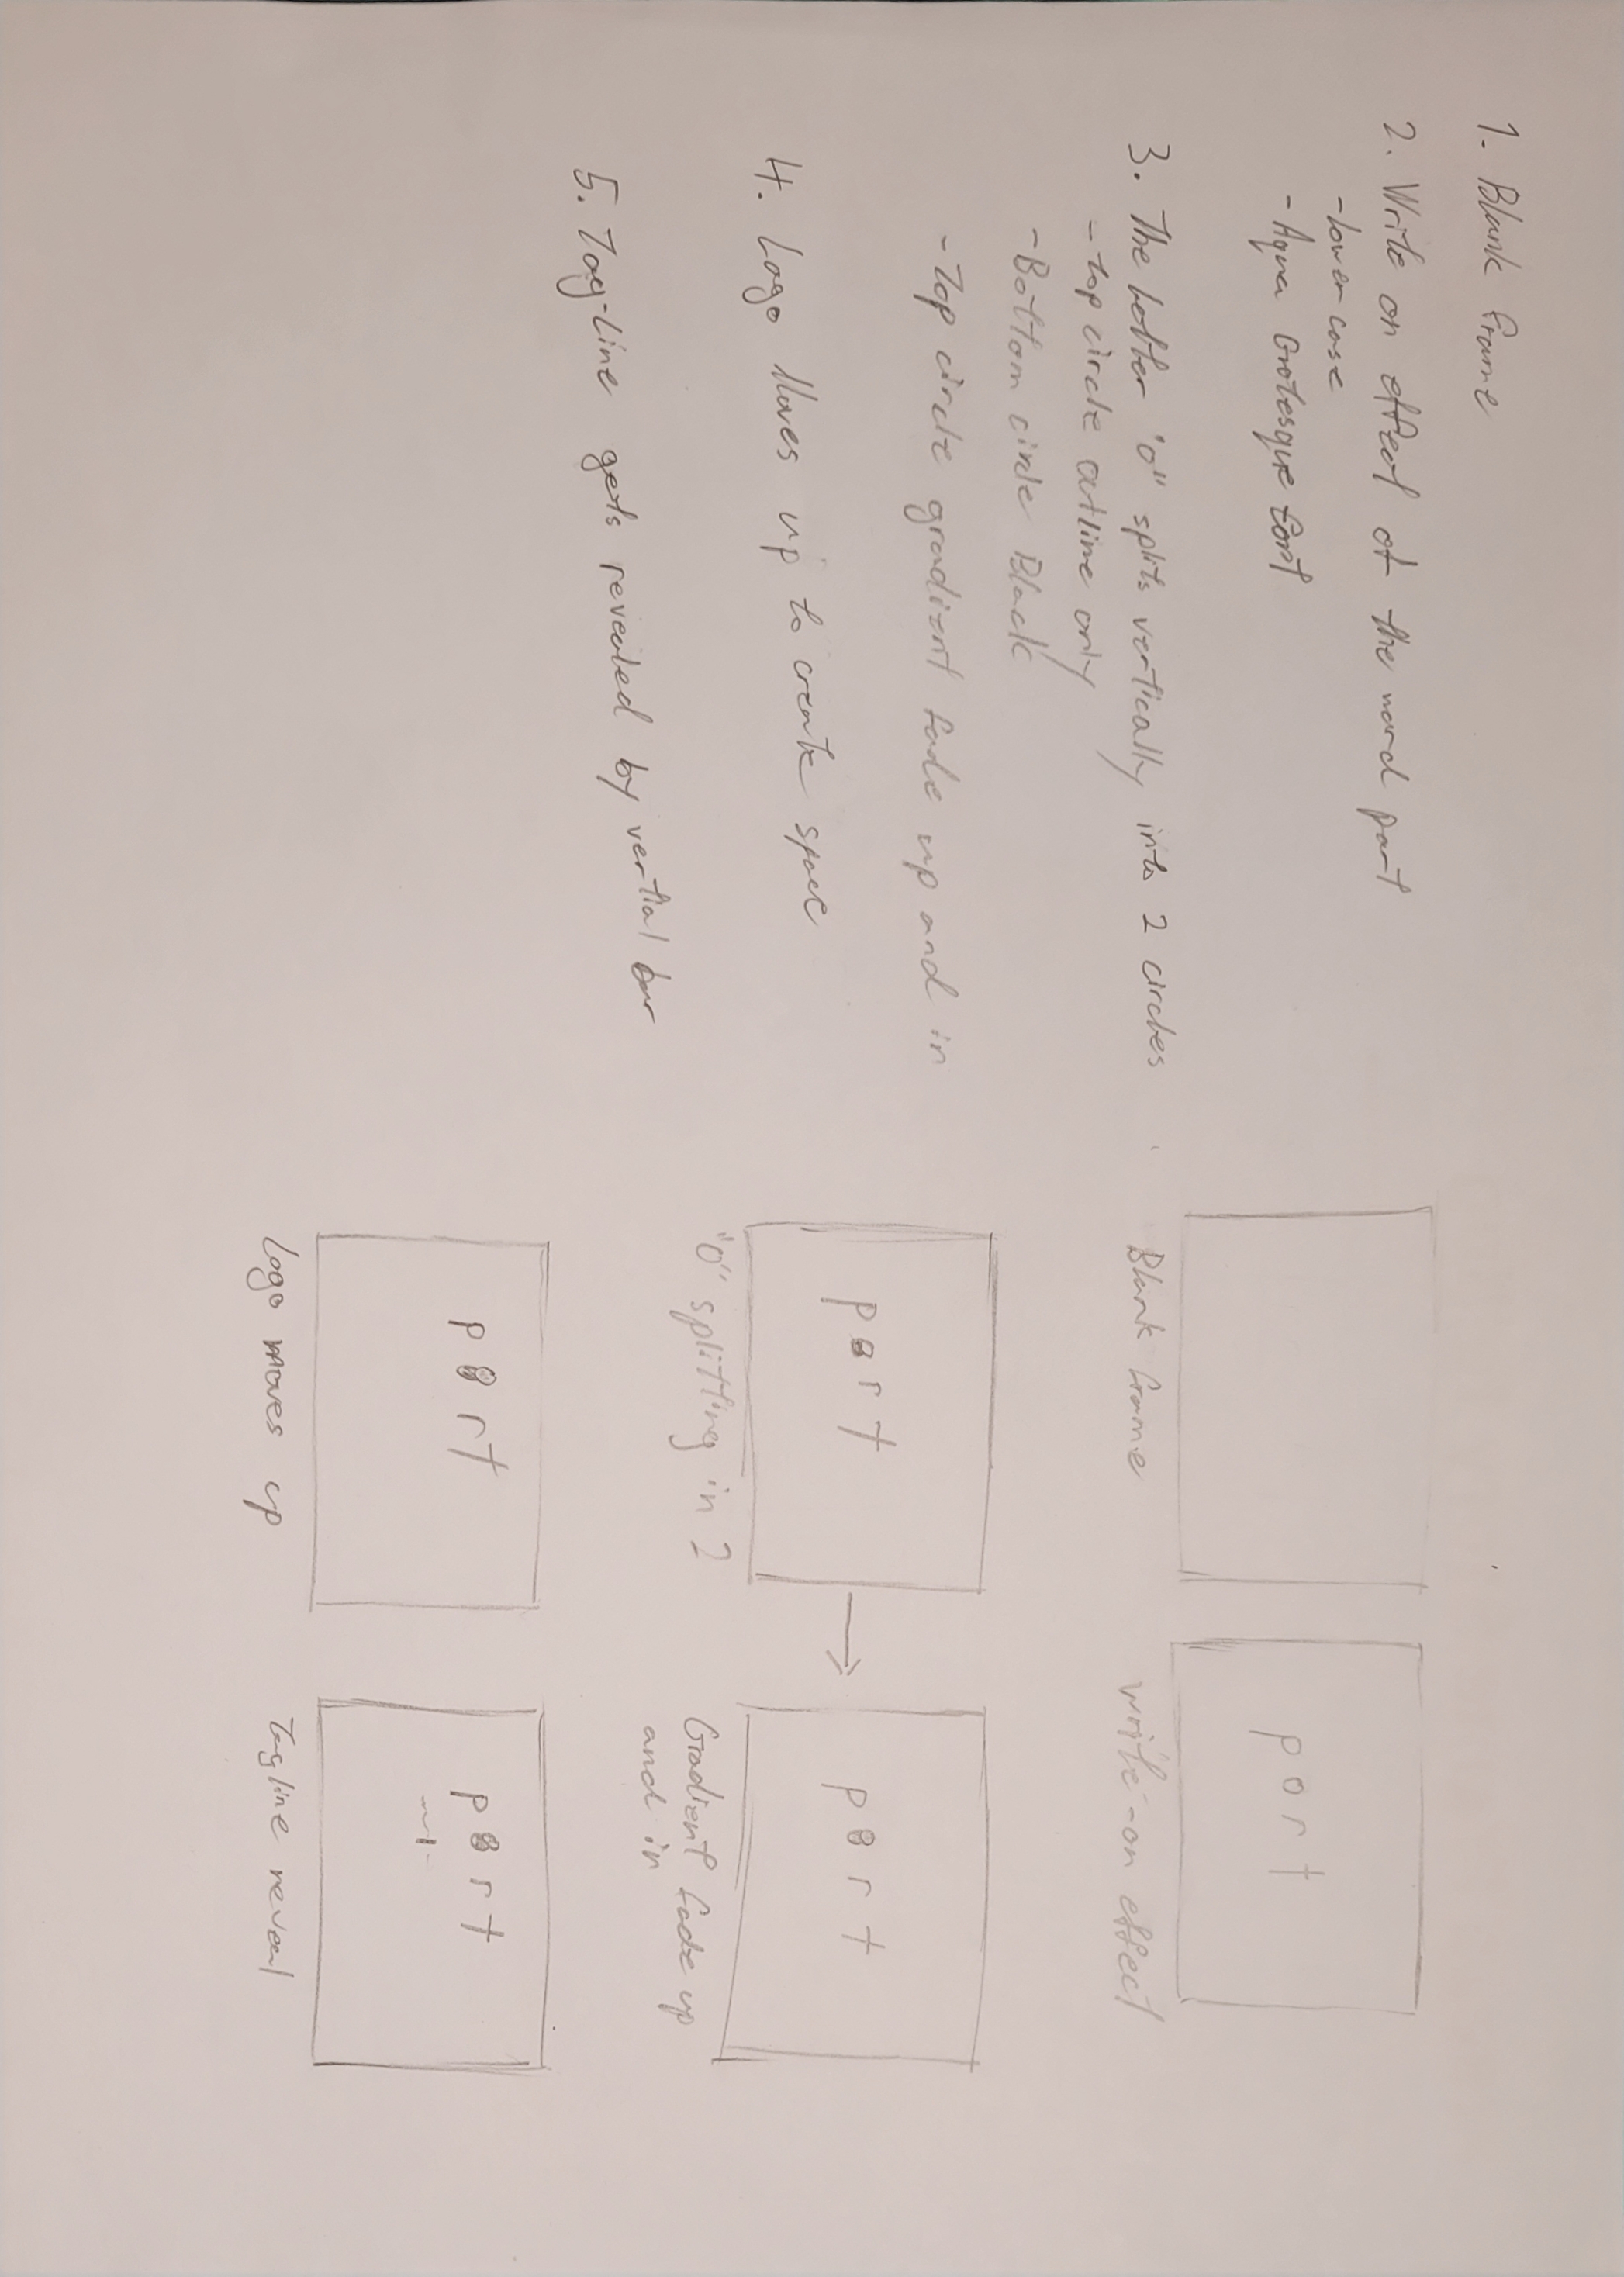 1. Blank frame
2. Write on effect of the word port
-lower case
- Aqua Grotesque font
3. The letter "o" splits vertically into 2 circles
- Top circle outline only
- Bottom circle Black
- Top circle gradient fade up and in
4. Logo Moves up to create space
5. Tag-Line gets revealed by vertial bar
port
Blank frame
write-on effect
port
port
"O" splitting in 2
Gradient fade up
and in
port
port
Logo moves up
Tagline reveal